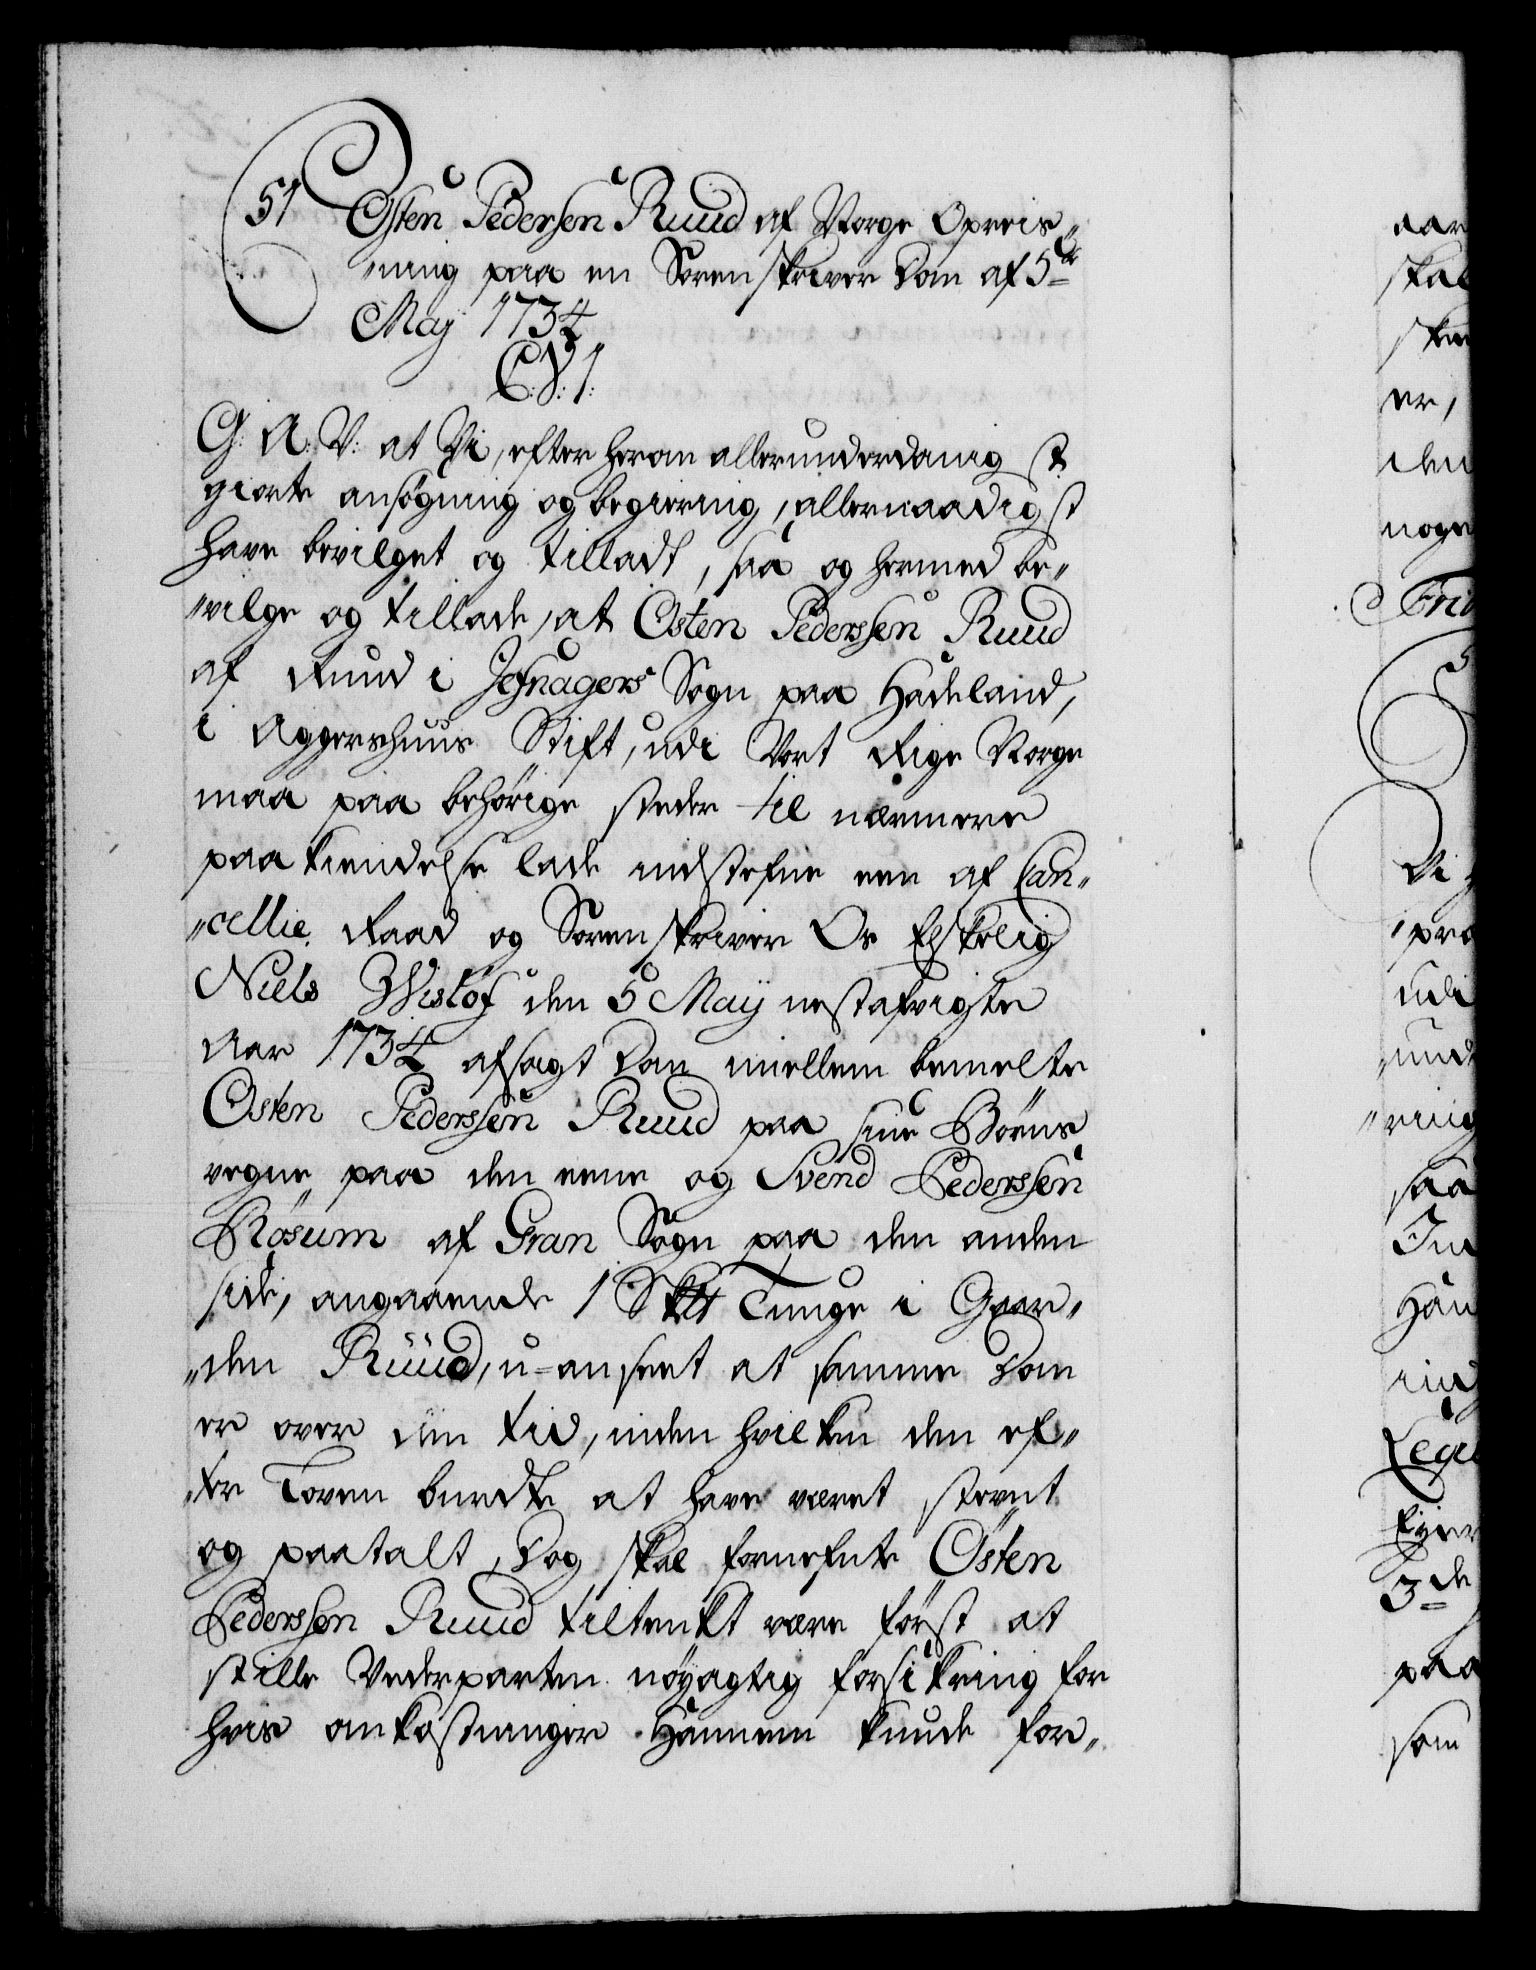 51 Østen Pedersen Ruud af Norge Opreis„
„ning paa en Sorenskriver Dom af 5te
Maij 1734
C:V:1:
G: A: V: at Vi, efter herom allerunderdanigst
giorte ansøgning og begiering, allernaadigst
have bevilget og tilladt, saa og hermed be„
„vilge og tillade, at Østen Pederssen Ruud
af Ruud i Jefnagers Sogn paa Hadeland,
i Aggershuus Stift, udi Vort Rige Norge
maa paa behørige steder til nærmere
paakiendelse lade indstefne een af Can„
„cellie Raad og Sorenskriver Os Elskelig
Niels Wisløf den 5 Maij nestafvigte
Aar 1734 afsagt Dom imellem bemelte
Østen Pederssen Ruud paa sine Børns
vegne paa den eene og Svend Pederssen
Røsum af Gran Sogn paa den anden
side, angaaende 1 Tunge i Gaar„
„den Ruud, u-anseet at samme Dom
er over den tid, inden hvilken den ef„
„ter Loven burdte at have været stevnt
og paatalt, Dog skal fornefnte Østen
Pederssen Ruud tiltenkt være først at
stille Vederparten nøyagtig forsikring for
hvis omkostninger Hannem kunde for„
aar
skal
er,
den
noge
Vi
udi
saa
3de
paa
som